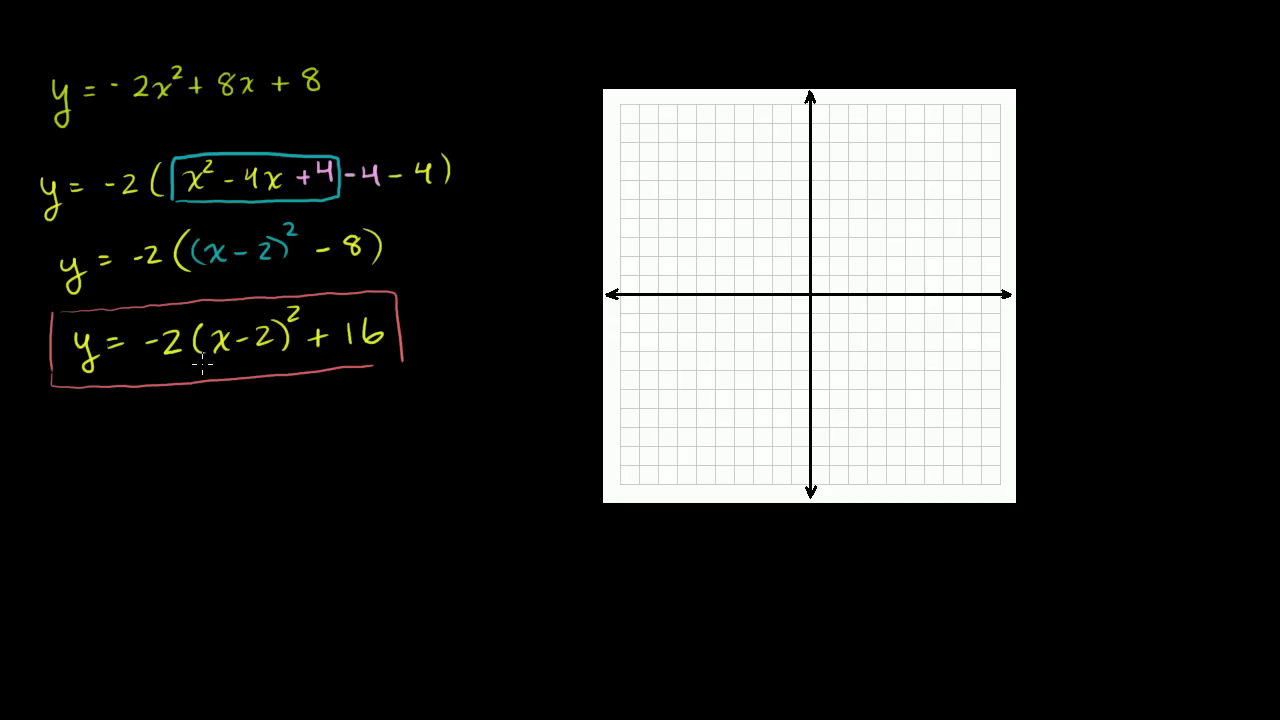 y = -2x² + 8x + 8
y = -2(x² - 4x + 4 - 4 - 4)
y = -2((x - 2)² - 8)
y = -2(x - 2)² + 16